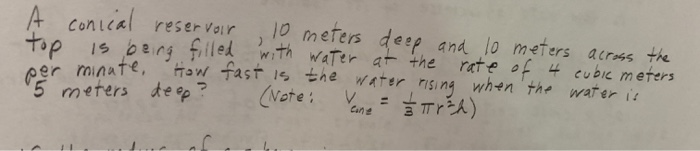 A conical reservoir, 10 meters deep and 10 meters across the
top is being filled with water at the rate of 4 cubic meters
per minate. How fast is the water rising when the water is
5 meters deep? (Note: V_cone = 1/3 πr²h)